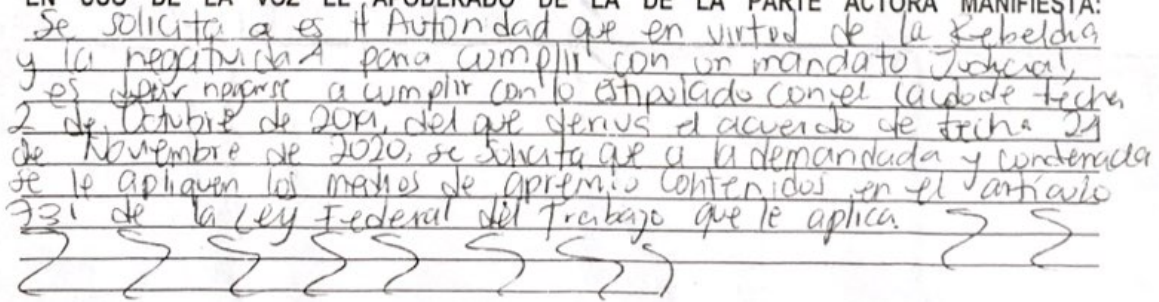 EN USO DE LA VOZ EL APODERADO DE LA DE LA PARTE ACTORA MANIFIESTA:
Se solicita a es H Autoridad que en virtud de la Rebeldia
y la negatividad para cumplir con un mandato Judicial,
es decir negarse a cumplir con lo estipulado con el laudo de fecha
2 de Octubre de 2019, del que deriva el acuerdo de fecha 21
de Noviembre de 2020, se solicita que a la demandada y condenada
se le apliquen los medios de apremio contenidos en el articulo
731 de la Ley Federal del Trabajo que le aplica.